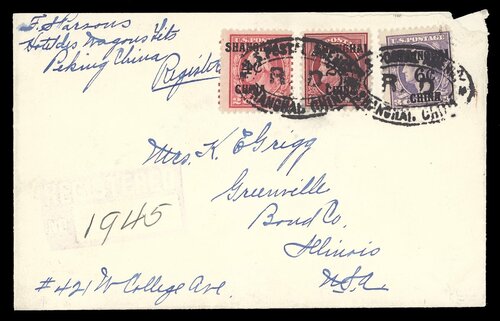 F. S. Parsons
Hotel des Wagons Lits
Peking China
Register
U.S. POSTAGE
SHANGHAI
CHINA
SHANGHAI
CHINA
U.S. POSTAGE
6¢
CHINA
R
SHANGHAI, CHINA
Mrs. K E Grigg
Greenville
Bond Co.
Illinois
U.S.A.
1945
#421 W College Ave.